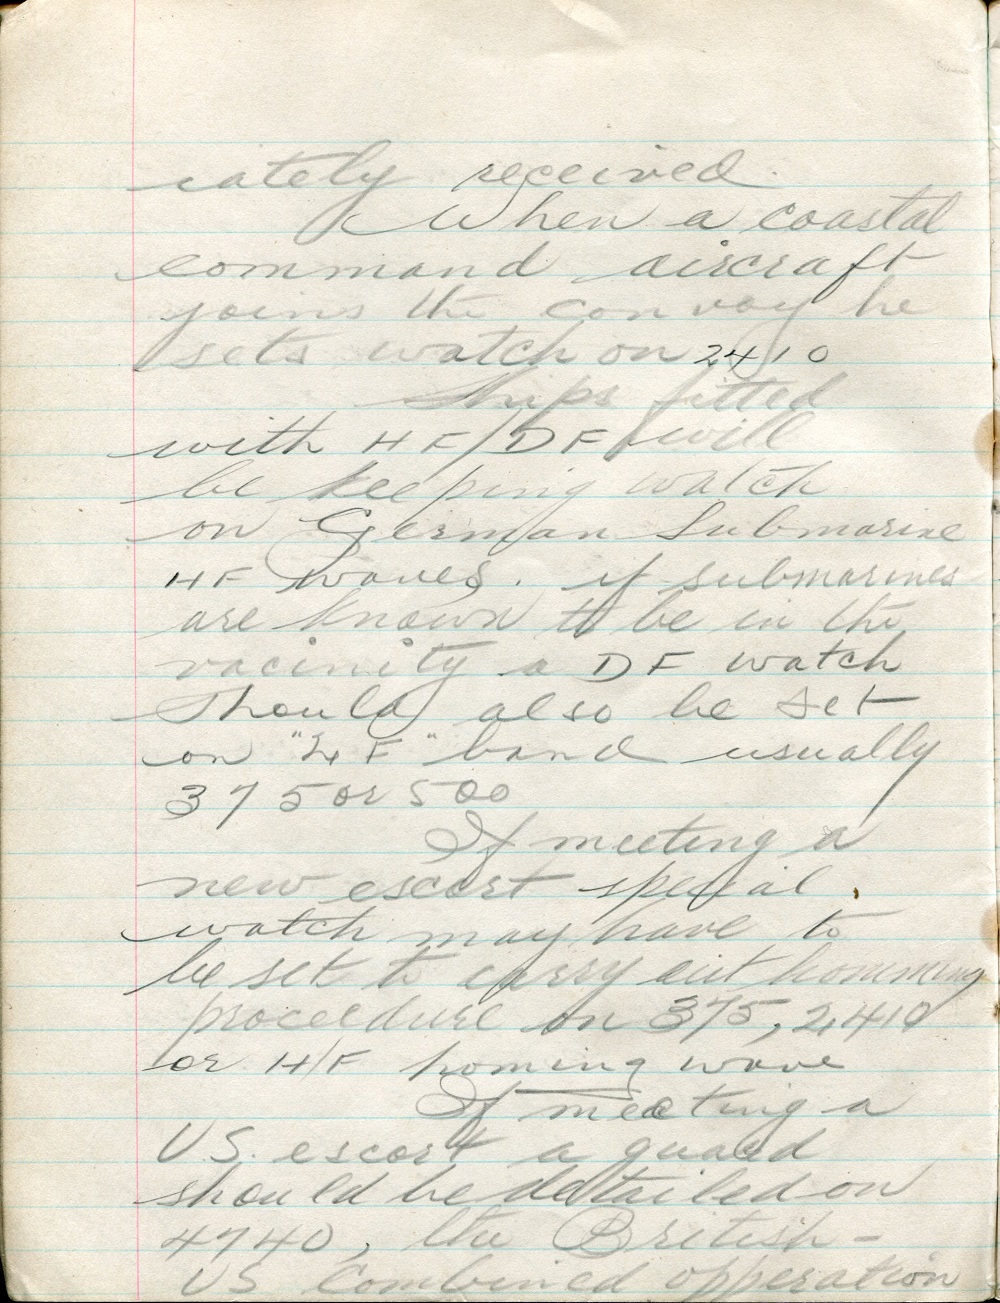 rately received.
When a coastal
command aircraft
joins the convoy he
sets watch on 2410
Ships fitted
with HF/DF will
be keeping watch
on German Submarine
HF waves. if submarines
are known to be in the
vacinity a DF watch
should also be set
on "MF" band usually
375 or 500
If meeting a
new escort special
watch may have to
be set to carry out homming
proceedure on 375, 2410
or H/F homing wave
If meeting a
US. escort a guard
should be detailed on
4740, the British-
US Combined opperation